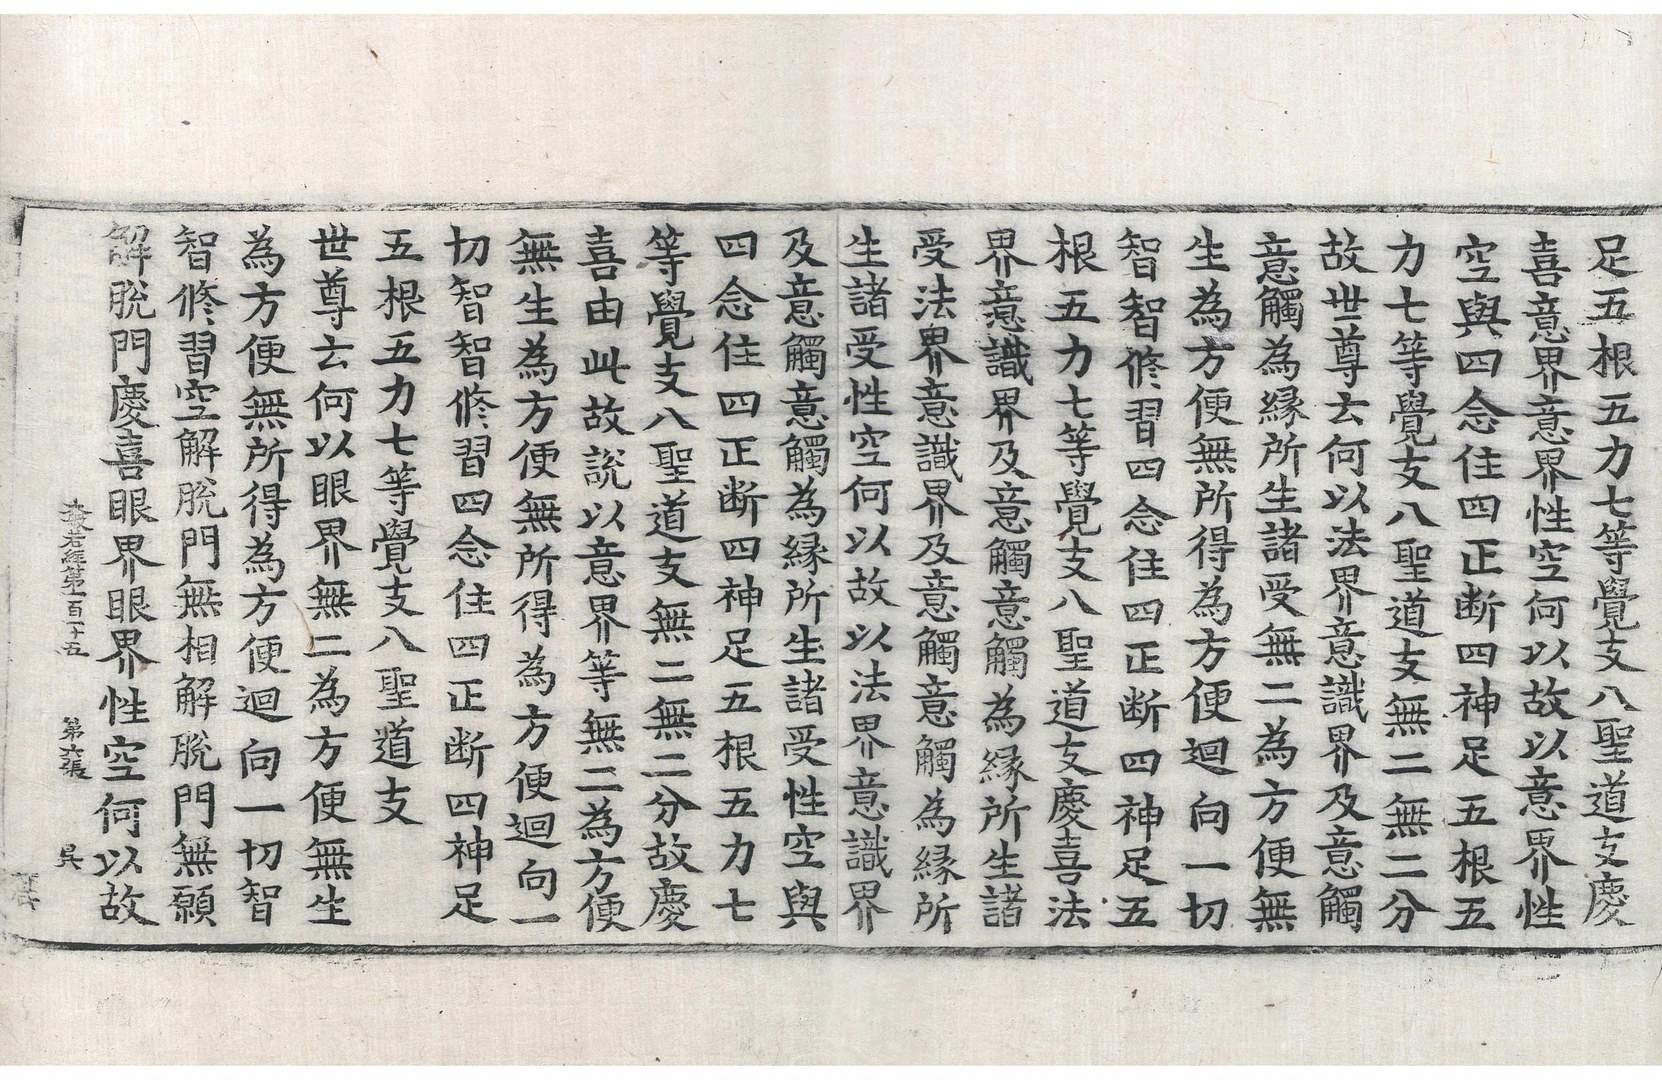 足五根五力七等覺支八聖道支慶
喜意界意界性空何以故以意界性
空與四念住四正断四神足五根五
力七等覺支八聖道支無二無二分
故世尊云何以法界意識界及意觸
意觸為縁所生諸受無二為方便無
生為方便無所得為方便迴向一切
智智修習四念住四正断四神足五
根五力七等覺支八聖道支慶喜法
界意識界及意觸意觸為縁所生諸
受法界意識界及意觸意觸為縁所
生諸受性空何以故以法界意識界
及意觸意觸為縁所生諸受性空與
四念住四正断四神足五根五力七
等覺支八聖道支無二無二分故慶
喜由此故說以意界等無二為方便
無生為方便無所得為方便迴向一
切智智修習四念住四正断四神足
五根五力七等覺支八聖道支
世尊云何以眼界無二為方便無生
為方便無所得為方便迴向一切智
智修習空解脫門無相解脫門無願
解脫門慶喜眼界眼界性空何以故
般若經第一百一十五 第六張 吳